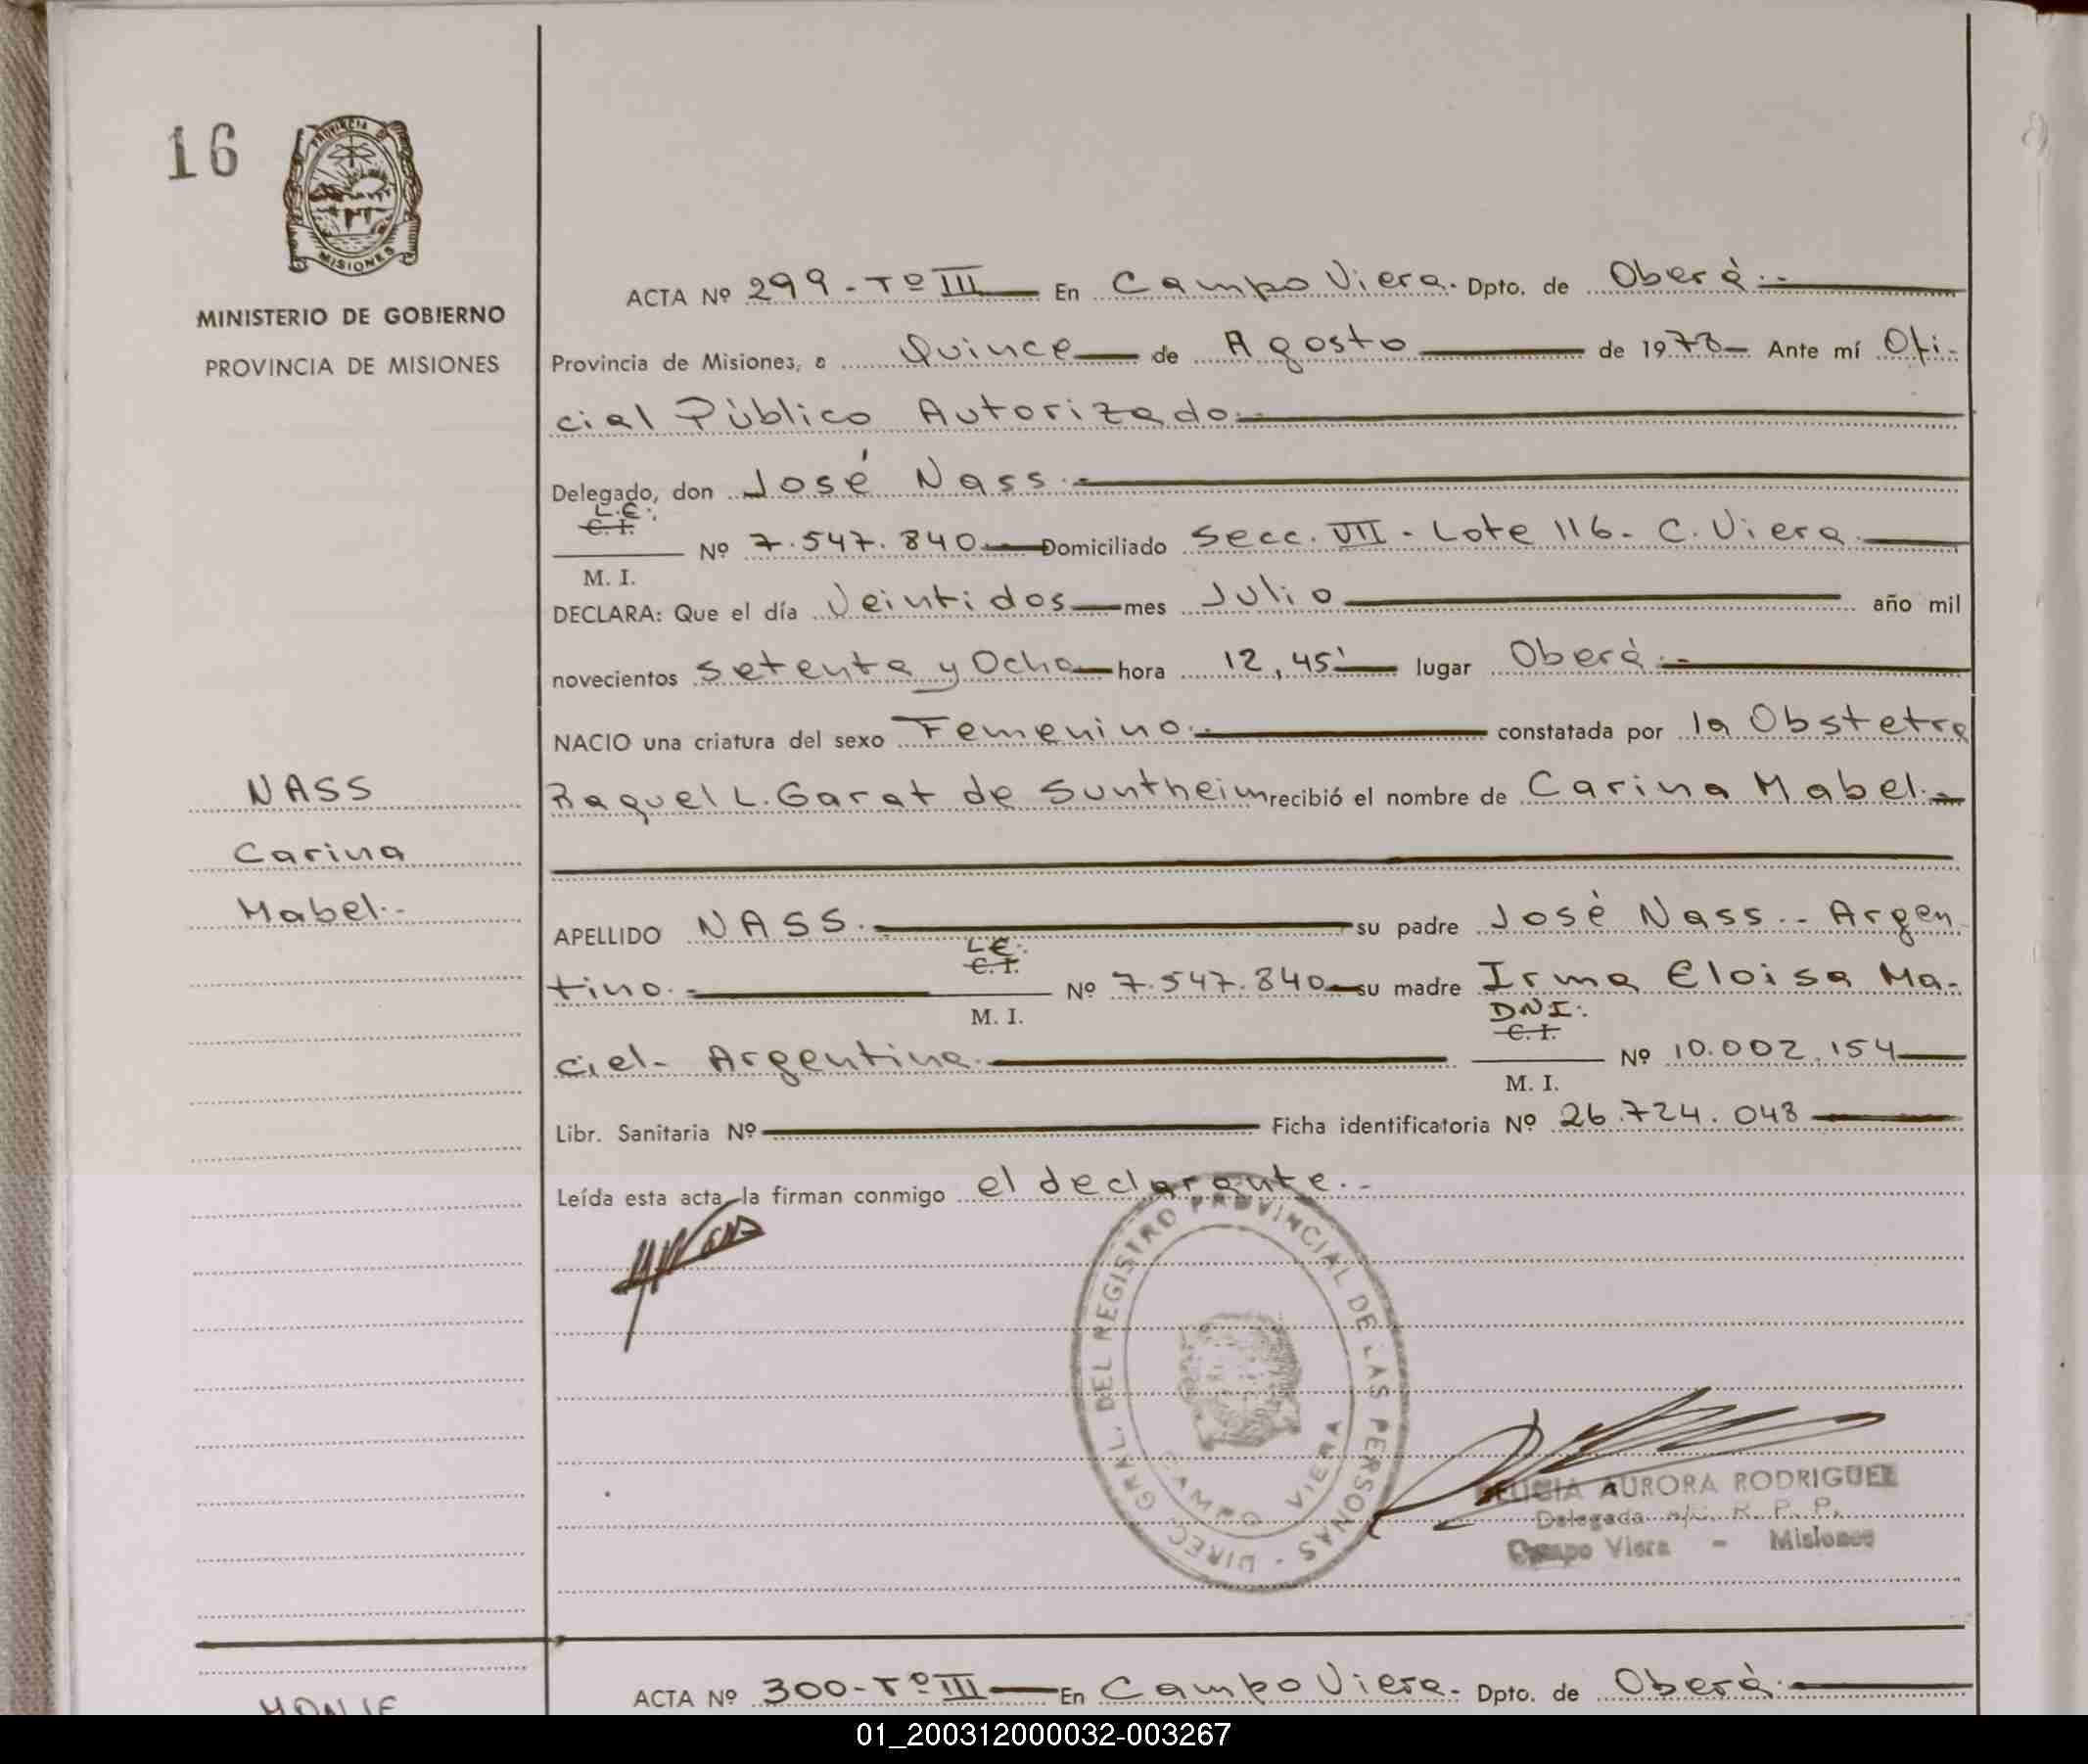 16
PROVINCIA DE
MISIONES
MINISTERIO DE GOBIERNO
PROVINCIA DE MISIONES
ACTA Nº 299 - Tº III En Campo Viera. Dpto. de Oberá.-
Provincia de Misiones, a Quince de Agosto de 1978 Ante mí Ofi-
cial Público Autorizado.-
Delegado, don José Nass.-
L.E.:
C. I.
Nº 7.547.840 Domiciliado Secc. VII - Lote 116 - C. Viera
M. I.
DECLARA: Que el día Veintidos mes Julio año mil
novecientos setenta y Ocho hora 12,45' lugar Oberá.-
NACIO una criatura del sexo Femenino.- constatada por la Obstetra
Raquel L. Garat de Suntheim recibió el nombre de Carina Mabel.-
NASS
Carina
Mabel.-
APELLIDO NASS.- su padre José Nass.- Argen
L.E.:
C. I.
tino.- Nº 7.547.840 su madre Irma Eloisa Ma-
M. I.
DNI:
C. I.
ciel- Argentina.- Nº 10.002.154
M. I.
Libr. Sanitaria Nº Ficha identificatoria Nº 26.724.048
Leída esta acta la firman conmigo el declarante.-
DIREC. GRAL. DEL REGISTRO PROVINCIAL DE LAS PERSONAS
CAMPO VIERA
AURORA RODRIGUEZ
Delegada R. P. P.
Campo Viera - Misiones
ACTA Nº 300 - Tº III En Campo Viera. Dpto. de Oberá.-
01_200312000032-003267